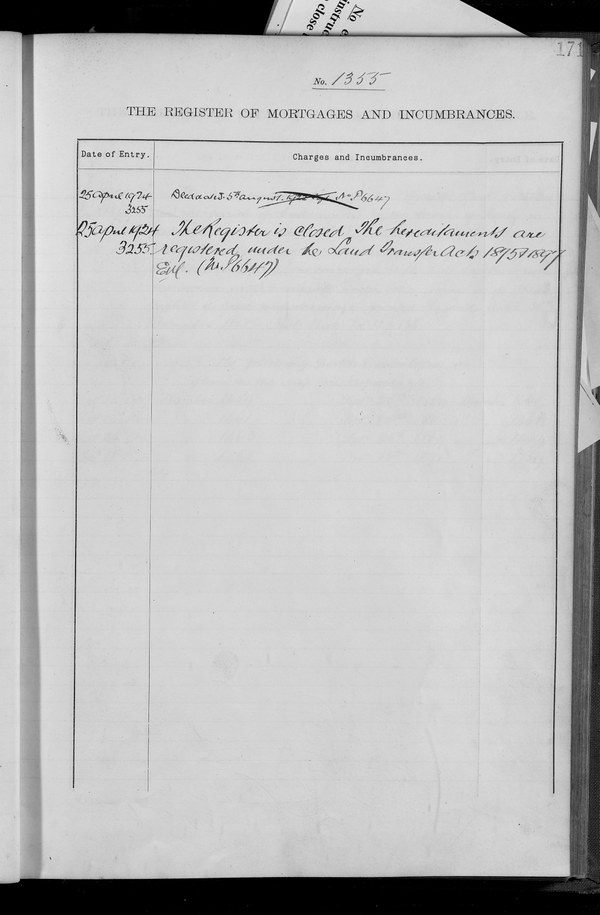 No
instruc
close
171
No. 1355
THE REGISTER OF MORTGAGES AND INCUMBRANCES.
Date of Entry.
Charges and Incumbrances.
25 April 1924
3255
5th August No P6647
25 April 1924 The Register is closed The hereditaments are
3255 registered under the Land Transfer Acts 1875 & 1897
(No P6647)